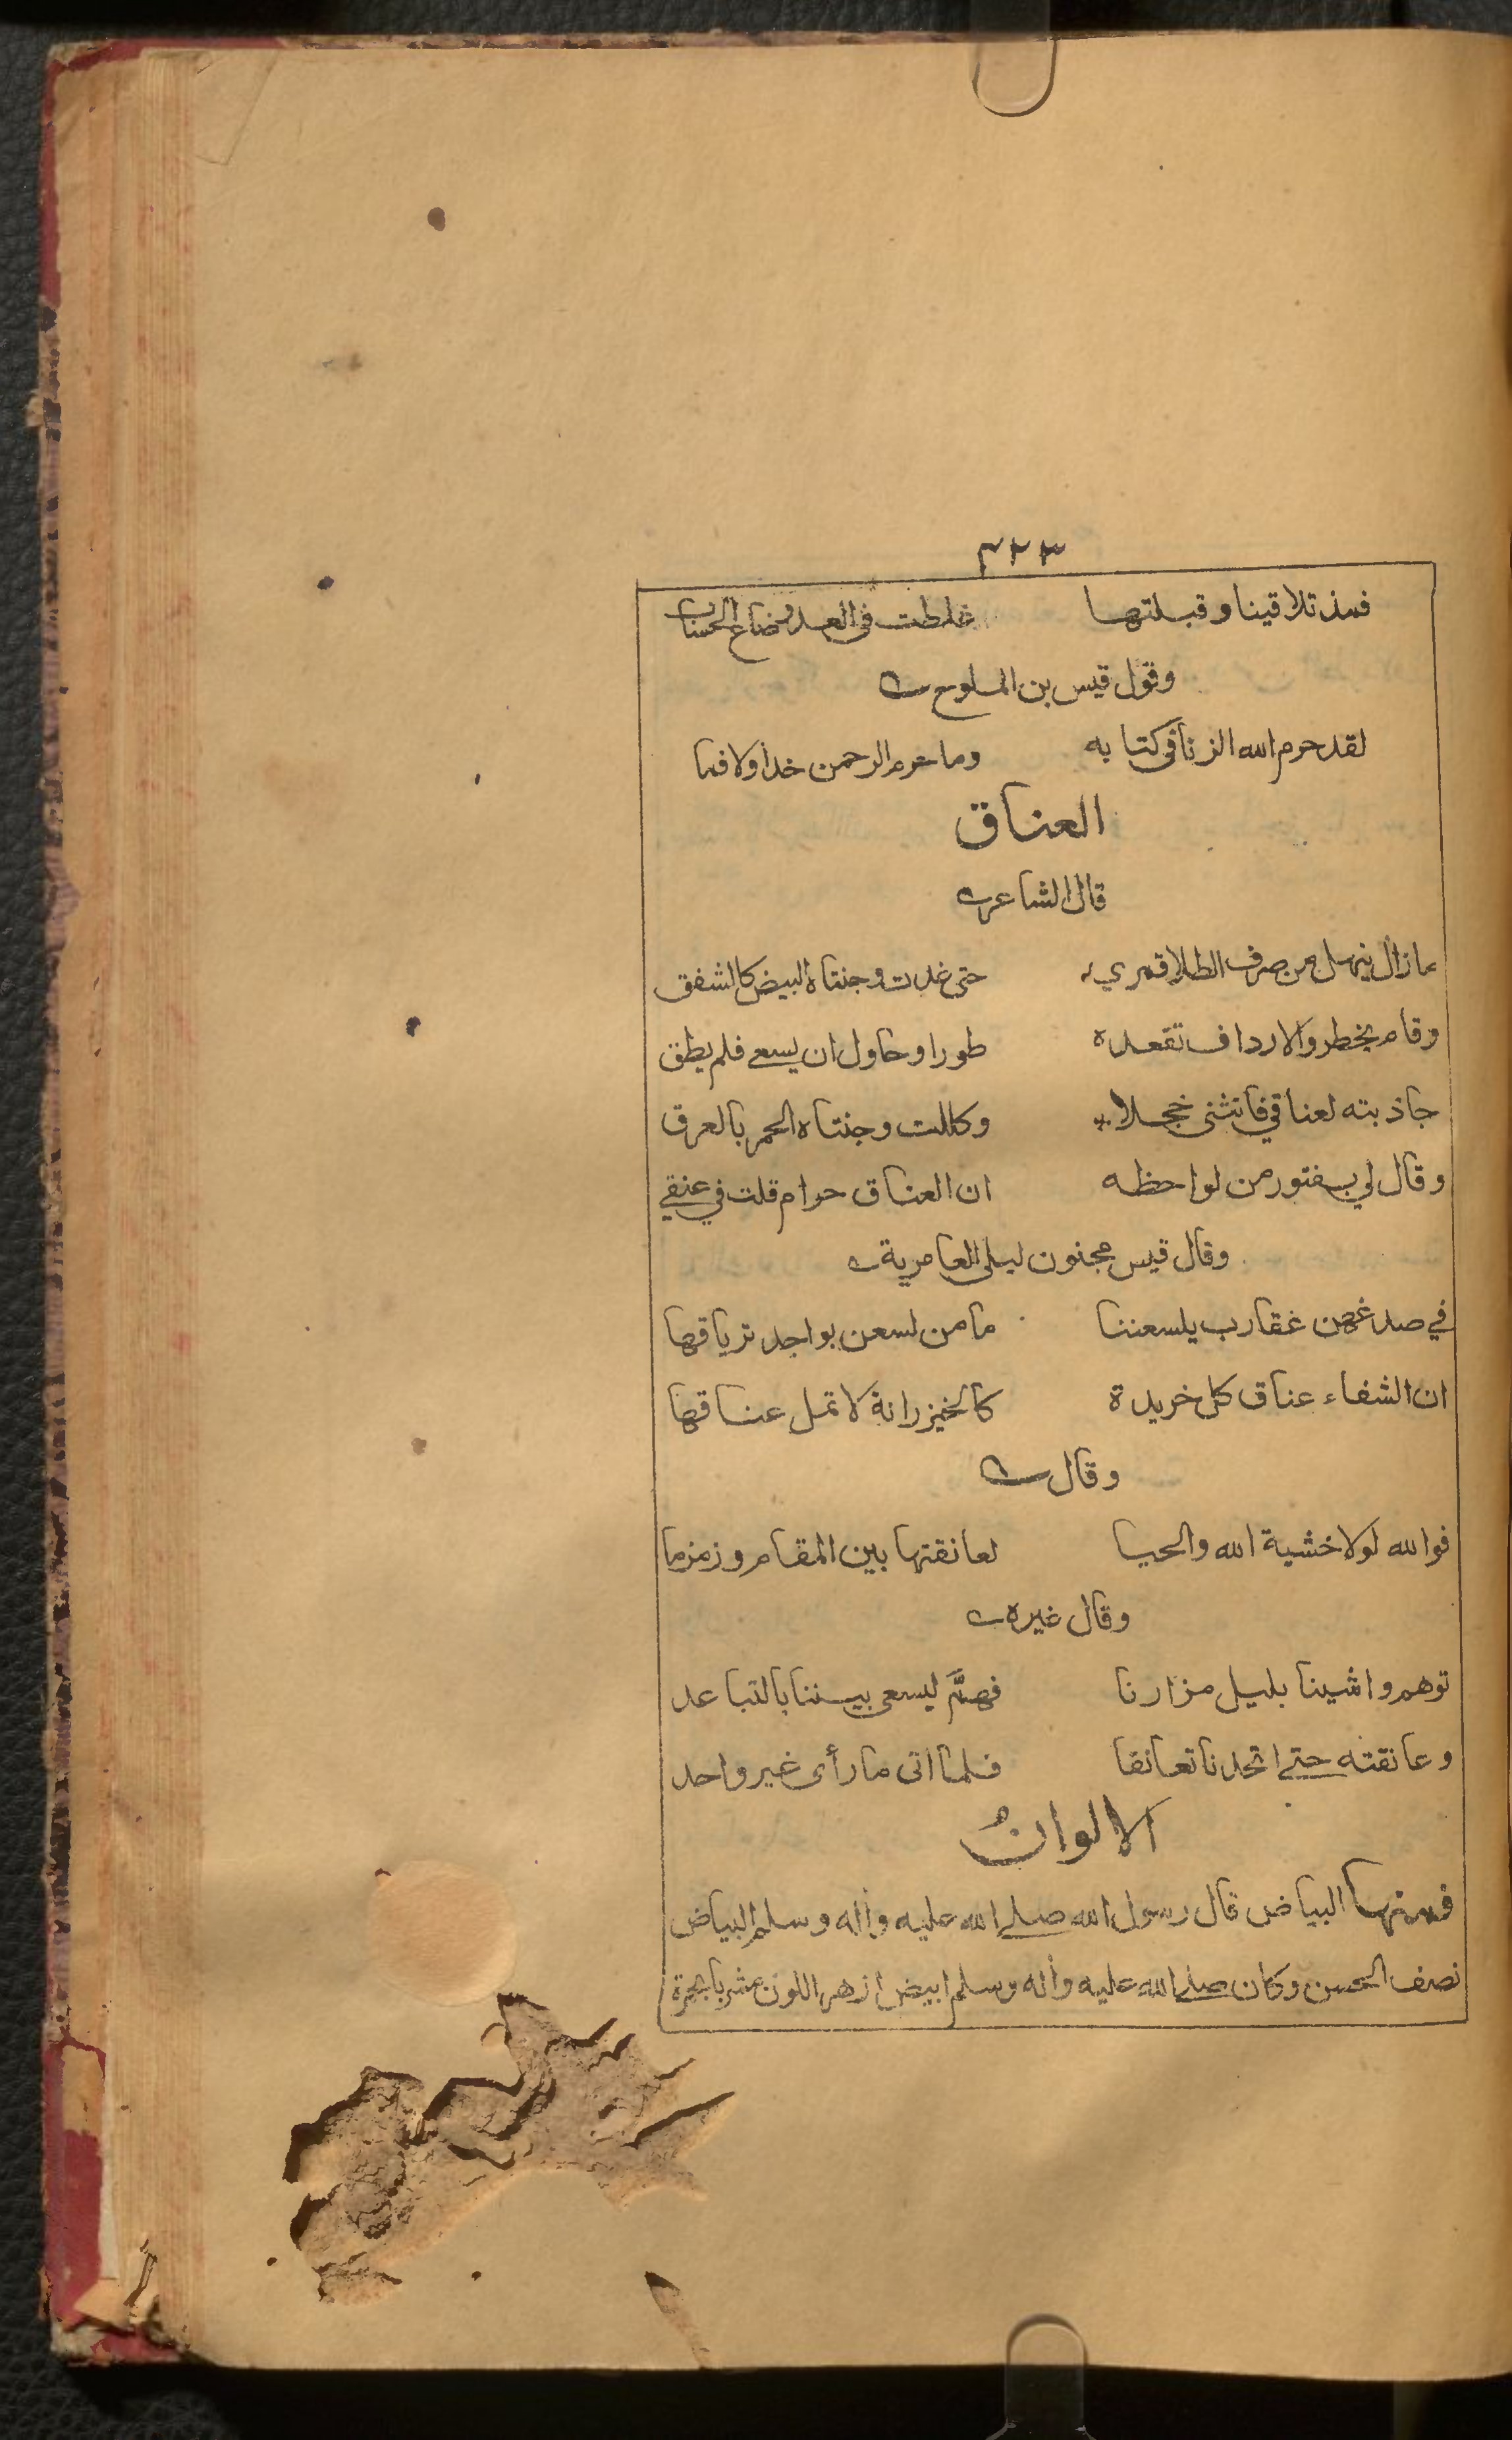 ٣٢٣
فمذ تلاقينا وقبلتها غلطت في العد وضاع الحساب
وقول قيس بن الملوح
لقد حرم الله الزنا في كتابه وما حرم الرحمن خدا ولا فما
العناق
قال الشاعر
ما زال ينهل من صرف الطلا قمري حتى غدت وجنتاه البيض كالشفق
وقام يخطر والارداف تقعده طورا وحاول ان يسعى فلم يطق
جاذبته لعناقي فانثنى خجلا وكللت وجنتاه الحمر بالعرق
وقال لي بفتور من لواحظه ان العناق حرام قلت في عنقي
وقال قيس مجنون ليلى العامرية
في صدغهن عقارب يلسعننا ما من لسعن بواجد ترياقها
ان الشفاء عناق كل خريدة كالخيزرانة لا تمل عناقها
وقال
فوالله لولا خشية الله والحيا لعانقتها بين المقام وزمزما
وقال غيره
توهم واشينا بليل مزارنا فهمَّ ليسعى بيننا بالتباعد
وعانقته حتى اتحدنا تعانقا فلما اتى ما رأى غير واحد
الالوان
فمنها البياض قال رسول الله صلى الله عليه وآله وسلم البياض
نصف الحسن وكان صلى الله عليه وآله وسلم ابيض ازهر اللون مشربا بحمرة